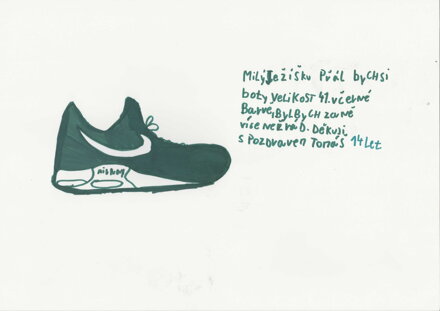 Milý Ježíšku Přál bych si
boty velikost 41. v černé
Barvě, Byl Bych za ně
více než rád. Děkuji
s Pozdraven Tomáš 14 let